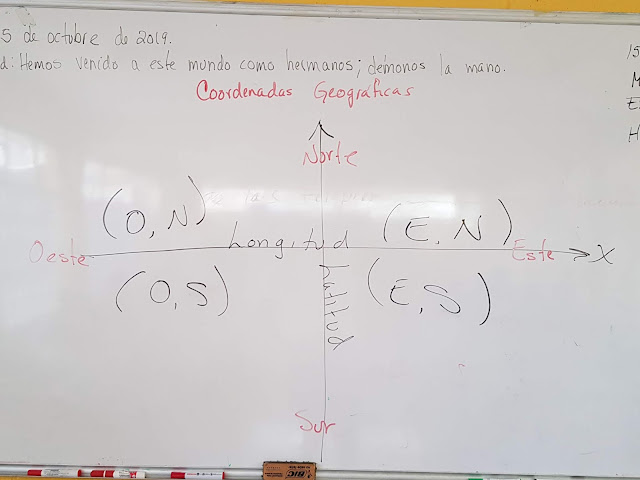 5 de octubre de 2019.
d: Hemos venido a este mundo como hermanos; démonos la mano.
Coordenadas Geográficas
Norte
(O, N)
(E, N)
Oeste
Longitud
Este
X
(O, S)
Latitud
(E, S)
Sur
15
M
E
H
BIC